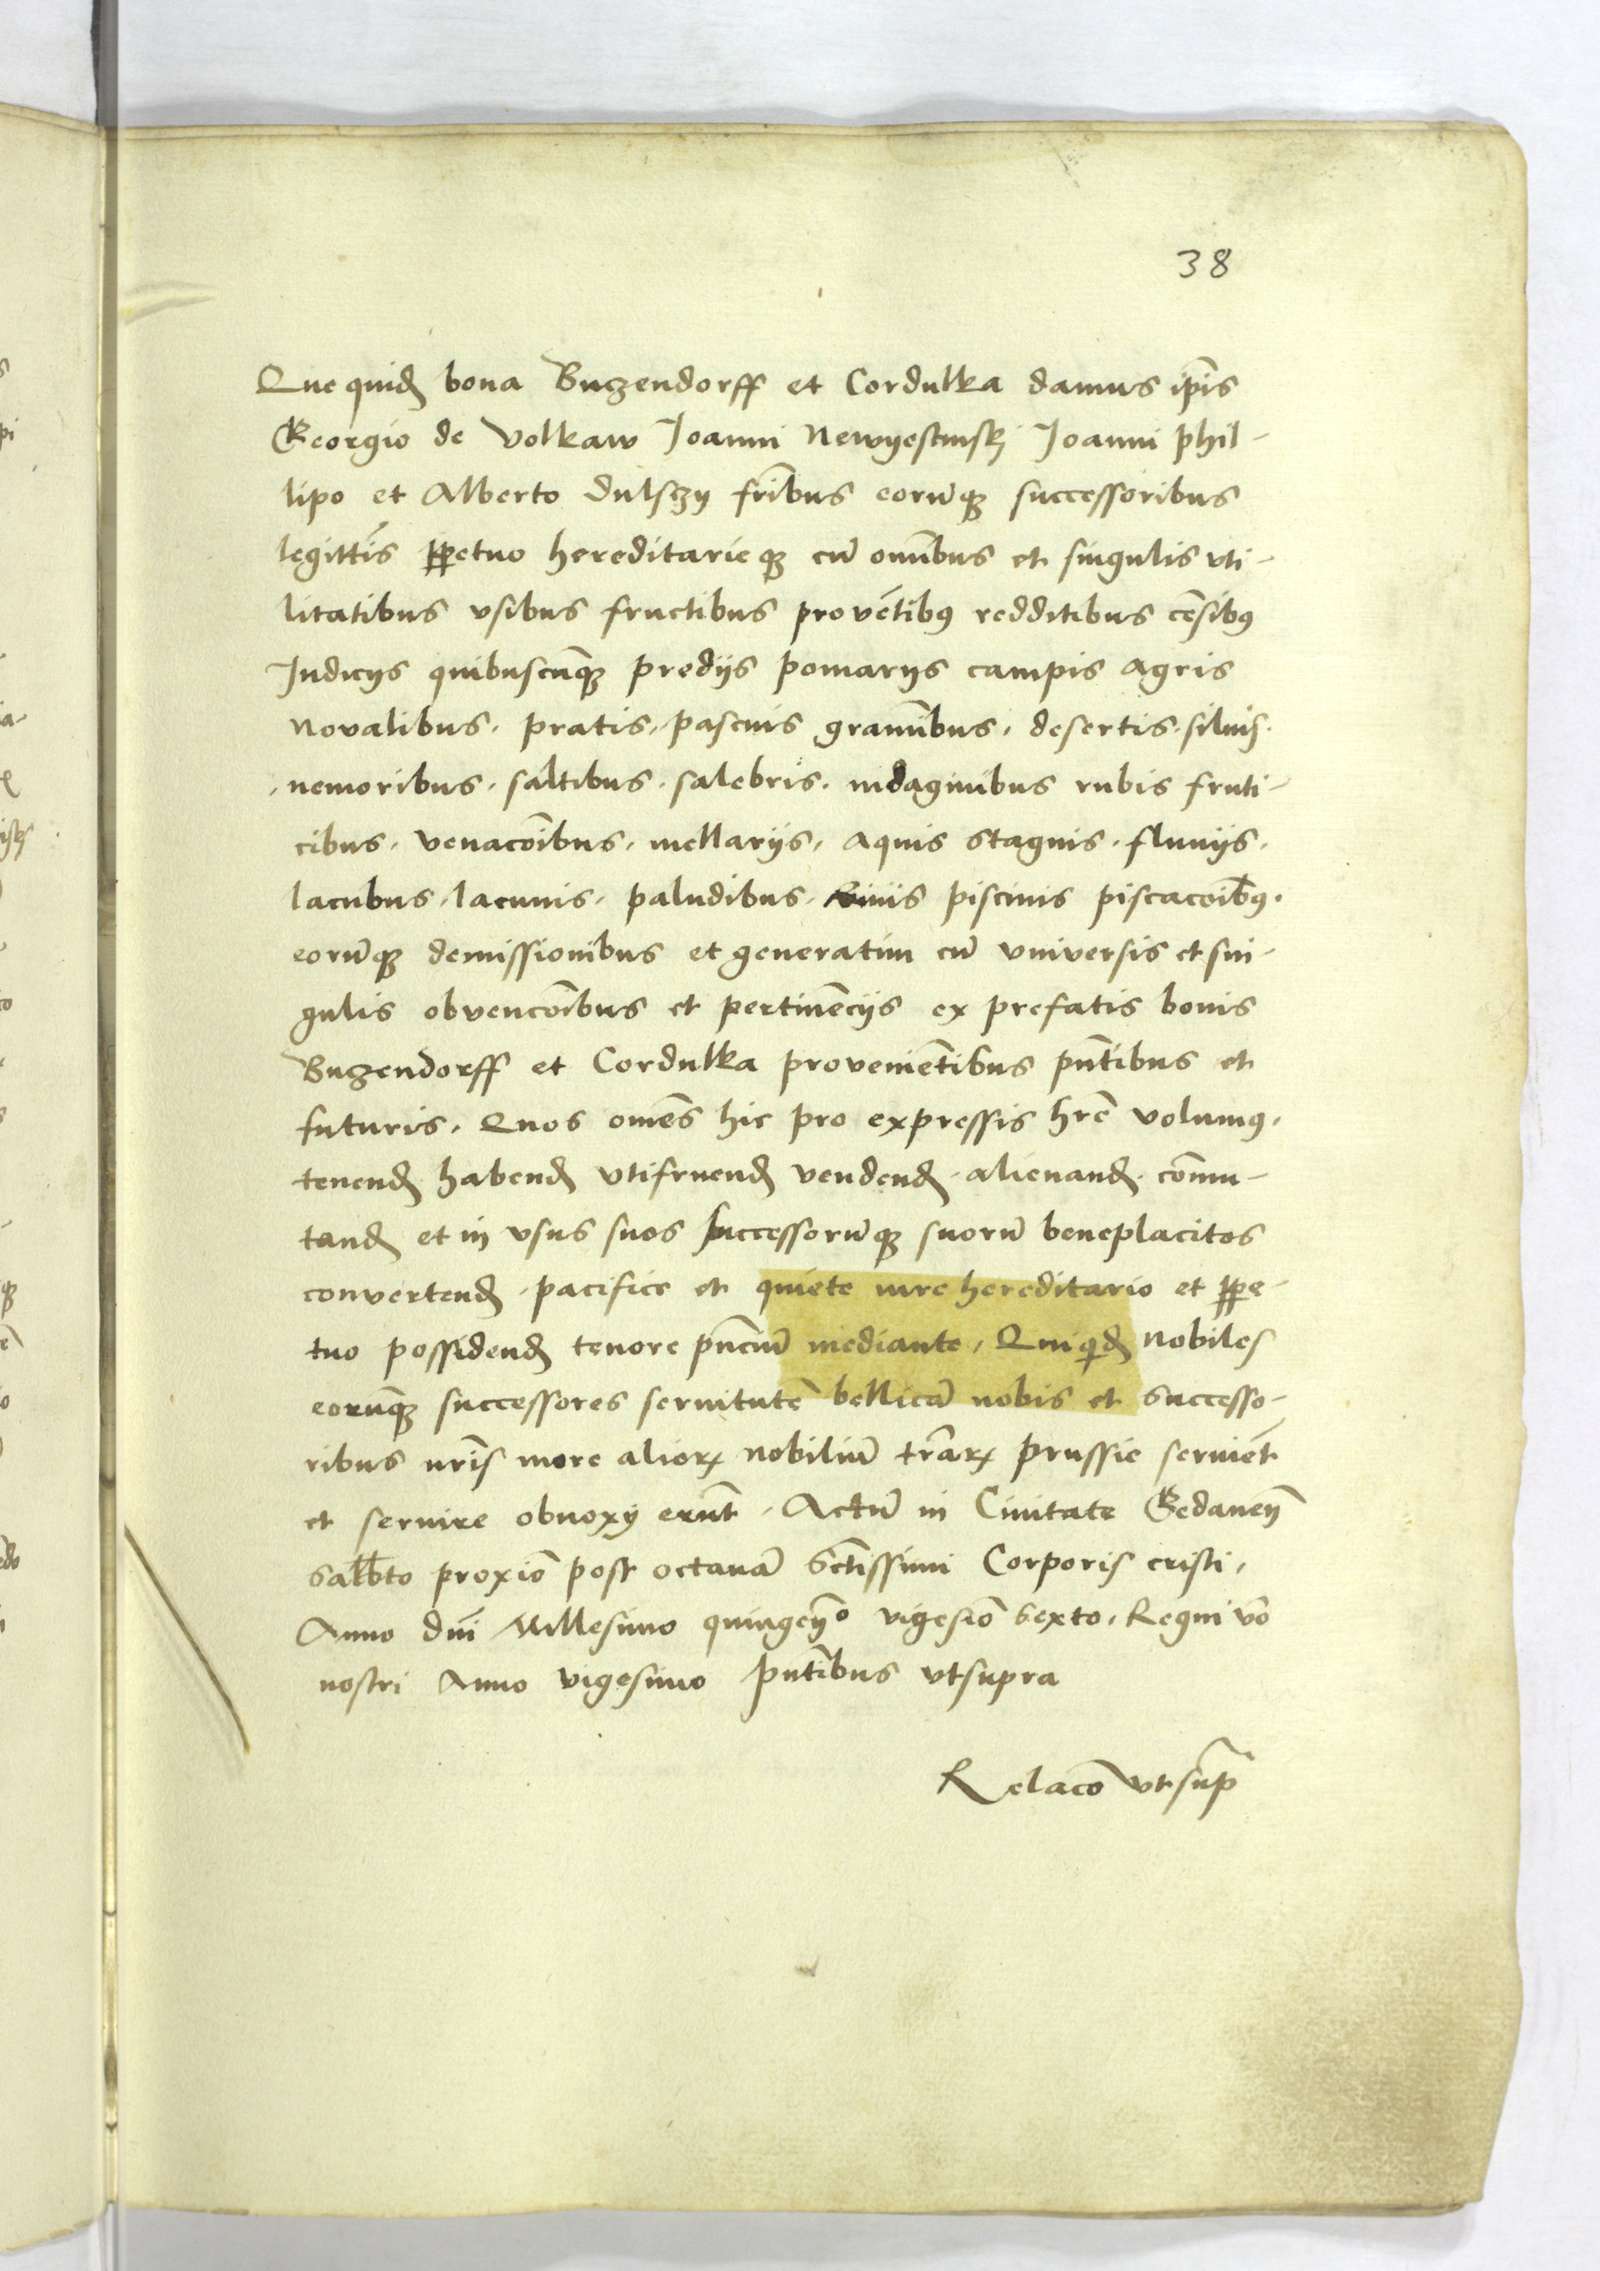 38
Que quid bona Buczendorff et Cordulka damus ip̄is
Georgio de Volkaw Joanni Newyescinskj Joanni phil-
lipo et Alberto Dulsczy fr̄ibus eorūq successoribus
legittīs ꝑpetuo hereditarieq cū om̄ibus et singulis vti-
litatibus vsibus fructibus provētibꝰ redditibus cēsibꝰ
Judicijs quibuscūq predijs pomarijs campis agris
novalibus · pratis · pascuis gramībus · desertis · siluis ·
nemoribus · saltibus · salebris · indaginibus rubis fruti-
cibus · venacōibus · mellarijs · aquis stagnis · fluuijs ·
lacubus · lacunis · paludibus · Riuis piscinis piscacōibꝰ ·
eorūq demissionibus et generatim cū vniversis et sin-
gulis obvencōibus et pertinēcijs ex prefatis bonis
Buczendorff et Cordulka proveniētibus pn̄tibus et
futuris · Quos om̄es hic pro expressis hr̄e volumꝰ ·
tenend habend vtifruend vendend · alienand · com̄u-
tand et in vsus suos successorūq suorū beneplacitos
convertend · pacifice et quiete iure hereditario et ꝑpe-
tuo possidend tenore pn̄ciū mediante · Qui qid Nobiles
eorūq successores seruitutē bellicā nobis et successo-
ribus nr̄is more alioꝝ nobiliū tr̄aꝝ prussie seruiēt
et seruire obnoxij erūt · Actū in Ciuitate Gedaneñ
Sabb̄to proxīo post octauā Sc̄tissimi Corporis cristi ·
Anno dn̄i Millesimo quingeñº vigesīo sexto · Regni vō
nostri Anno vigesimo pn̄tibus vtsupra
Relacō vtsup̄